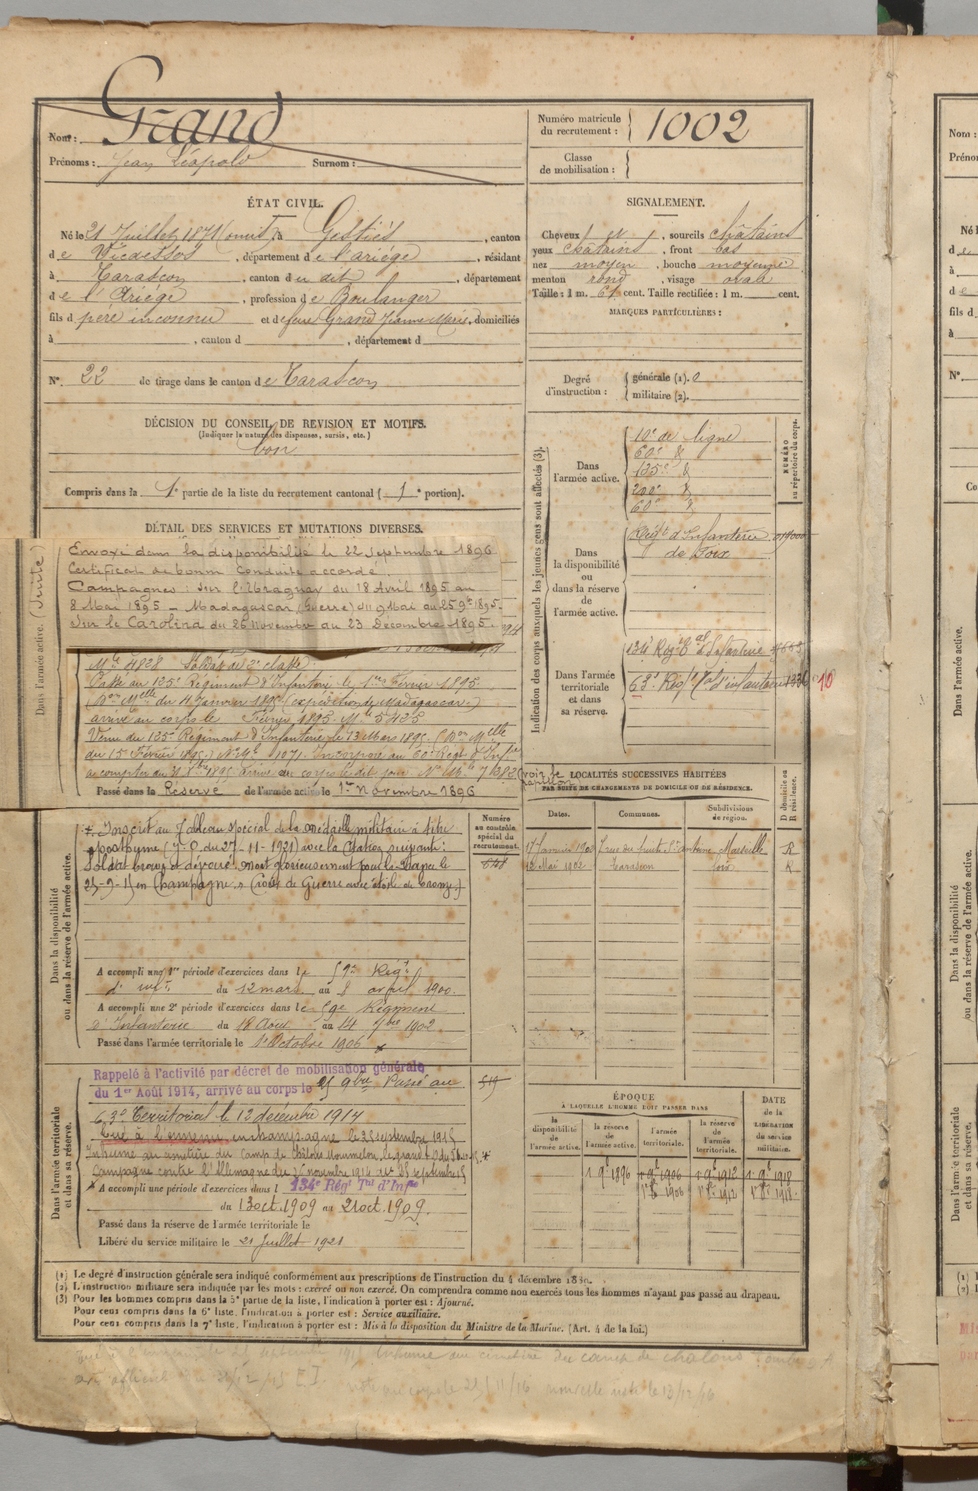 Nom : Grand
Prénoms : Jean Léopold Surnom :
Numéro matricule du recrutement : 1002
Classe de mobilisation :
ÉTAT CIVIL.
Né le 21 Juillet 1871 à Gestiès, canton
de Vicdessos, département de l'ariège, résidant
à Tarascon, canton du dit, département
de l'Ariège, profession de Boulanger
fils d père inconnu et de feue Grand Jeanne Marie, domiciliés
à , canton d , département d
N° 22 de tirage dans le canton de Tarascon
SIGNALEMENT.
Cheveux , sourcils châtains
yeux châtains, front bas
nez moyen, bouche moyenne
menton rond, visage oval
Taille : 1 m. 61 cent. Taille rectifiée : 1 m. cent.
MARQUES PARTICULIÈRES :
Degré d'instruction : générale (1). 0
militaire (2).
DÉCISION DU CONSEIL DE REVISION ET MOTIFS.
(Indiquer la nature des dispenses, sursis, etc.)
bon
Compris dans la 1e partie de la liste du recrutement cantonal (1e portion).
DÉTAIL DES SERVICES ET MUTATIONS DIVERSES.
Dans l'armée active. (Suite)
Envoyé dans la disponibilité le 22 Septembre 1896
Certificat de bonne Conduite accordé.
Campagnes : sur l'Uraguay du 18 Avril 1895 au
8 Mai 1895 – Madagascar (Guerre) du 9 Mai au 25 9bre 1895.
Sur le Carolina du 26 Novembre au 23 Decembre 1895.
Mle 4828 Soldat de 2e classe.
Passé au 135e Régiment d'Infanterie le 1er Février 1895
(expédition de Madagascar)
arrivé au corps le Février 1895
Venu du 135e Régiment d'Infanterie le 13 Mars 1895
du 15 Février 1895
(voir le papillon)
Passé dans la Réserve de l'armée active le 1er Novembre 1896
Indication des corps auxquels les jeunes gens sont affectés (3).
NUMÉRO au répertoire du corps.
Dans l'armée active.
10e de ligne
60e d°
135e d°
200e d°
60e d°
Dans la disponibilité ou dans la réserve de l'armée active.
Régt d'Infanterie
de Foix
Dans l'armée territoriale et dans sa réserve.
134e Regt Tal d'Infanterie
63e Regt Tal d'infanterie
10
LOCALITÉS SUCCESSIVES HABITÉES
PAR SUITE DE CHANGEMENTS DE DOMICILE OU DE RÉSIDENCE.
Dates. Communes. Subdivisions de région. D domicile ou R résidence.
17 janvier 1900 Marseille R
12 Mai 1902 Tarascon foix R
Dans la disponibilité ou dans la réserve de l'armée active.
Numéro au contrôle spécial du recrutement.
Inscrit au Tableau spécial de la médaille militaire à titre
posthume (J.O. du 27-11-1921) avec la citation suivante :
Soldat brave et dévoué, mort glorieusement pour la France le
25-9-15 en Champagne. (Croix de Guerre avec étoile de bronze)
A accompli une 1re période d'exercices dans le 59e Regt
d'infie du 12 mars au 8 avril 1900.
A accompli une 2e période d'exercices dans le 59e Régiment
d'Infanterie du 18 Août au 14 7bre 1902
Passé dans l'armée territoriale le 1er Octobre 1906
Dans l'armée territoriale et dans sa réserve.
Rappelé à l'activité par décret de mobilisation générale
du 1er Août 1914, arrivé au corps le 25 9bre Passé au
63e Territorial le 12 décembre 1914
Tué à l'ennemi en champagne le 25 septembre 1915
Inhumé au cimetière du Camp de Châlons Mourmelon-le-grand
Campagne contre l'Allemagne du novembre 1914 au 25 septembre 15
A accompli une période d'exercices dans l 134e Régt Tal d'Infie
du 13 oct. 1909 au 21 oct. 1909.
Passé dans la réserve de l'armée territoriale le
Libéré du service militaire le 21 Juillet 1921
ÉPOQUE
A LAQUELLE L'HOMME DOIT PASSER DANS
la disponibilité de l'armée active. la réserve de l'armée active. l'armée territoriale. la réserve de l'armée territoriale.
DATE de la LIBÉRATION du service militaire.
1 9e 1896 1 9e 1906 1 9e 1912 1 9e 1918
1er 8e 1906 1er 8e 1912 1er 8e 1918
(1) Le degré d'instruction générale sera indiqué conformément aux prescriptions de l'instruction du 4 décembre 1889.
(2) L'instruction militaire sera indiquée par les mots : exercé ou non exercé. On comprendra comme non exercés tous les hommes n'ayant pas passé au drapeau.
(3) Pour les hommes compris dans la 5e partie de la liste, l'indication à porter est : Ajourné.
Pour ceux compris dans la 6e liste, l'indication à porter est : Service auxiliaire.
Pour ceux compris dans la 7e liste, l'indication à porter est : Mis à la disposition du Ministre de la Marine. (Art. 4 de la loi.)